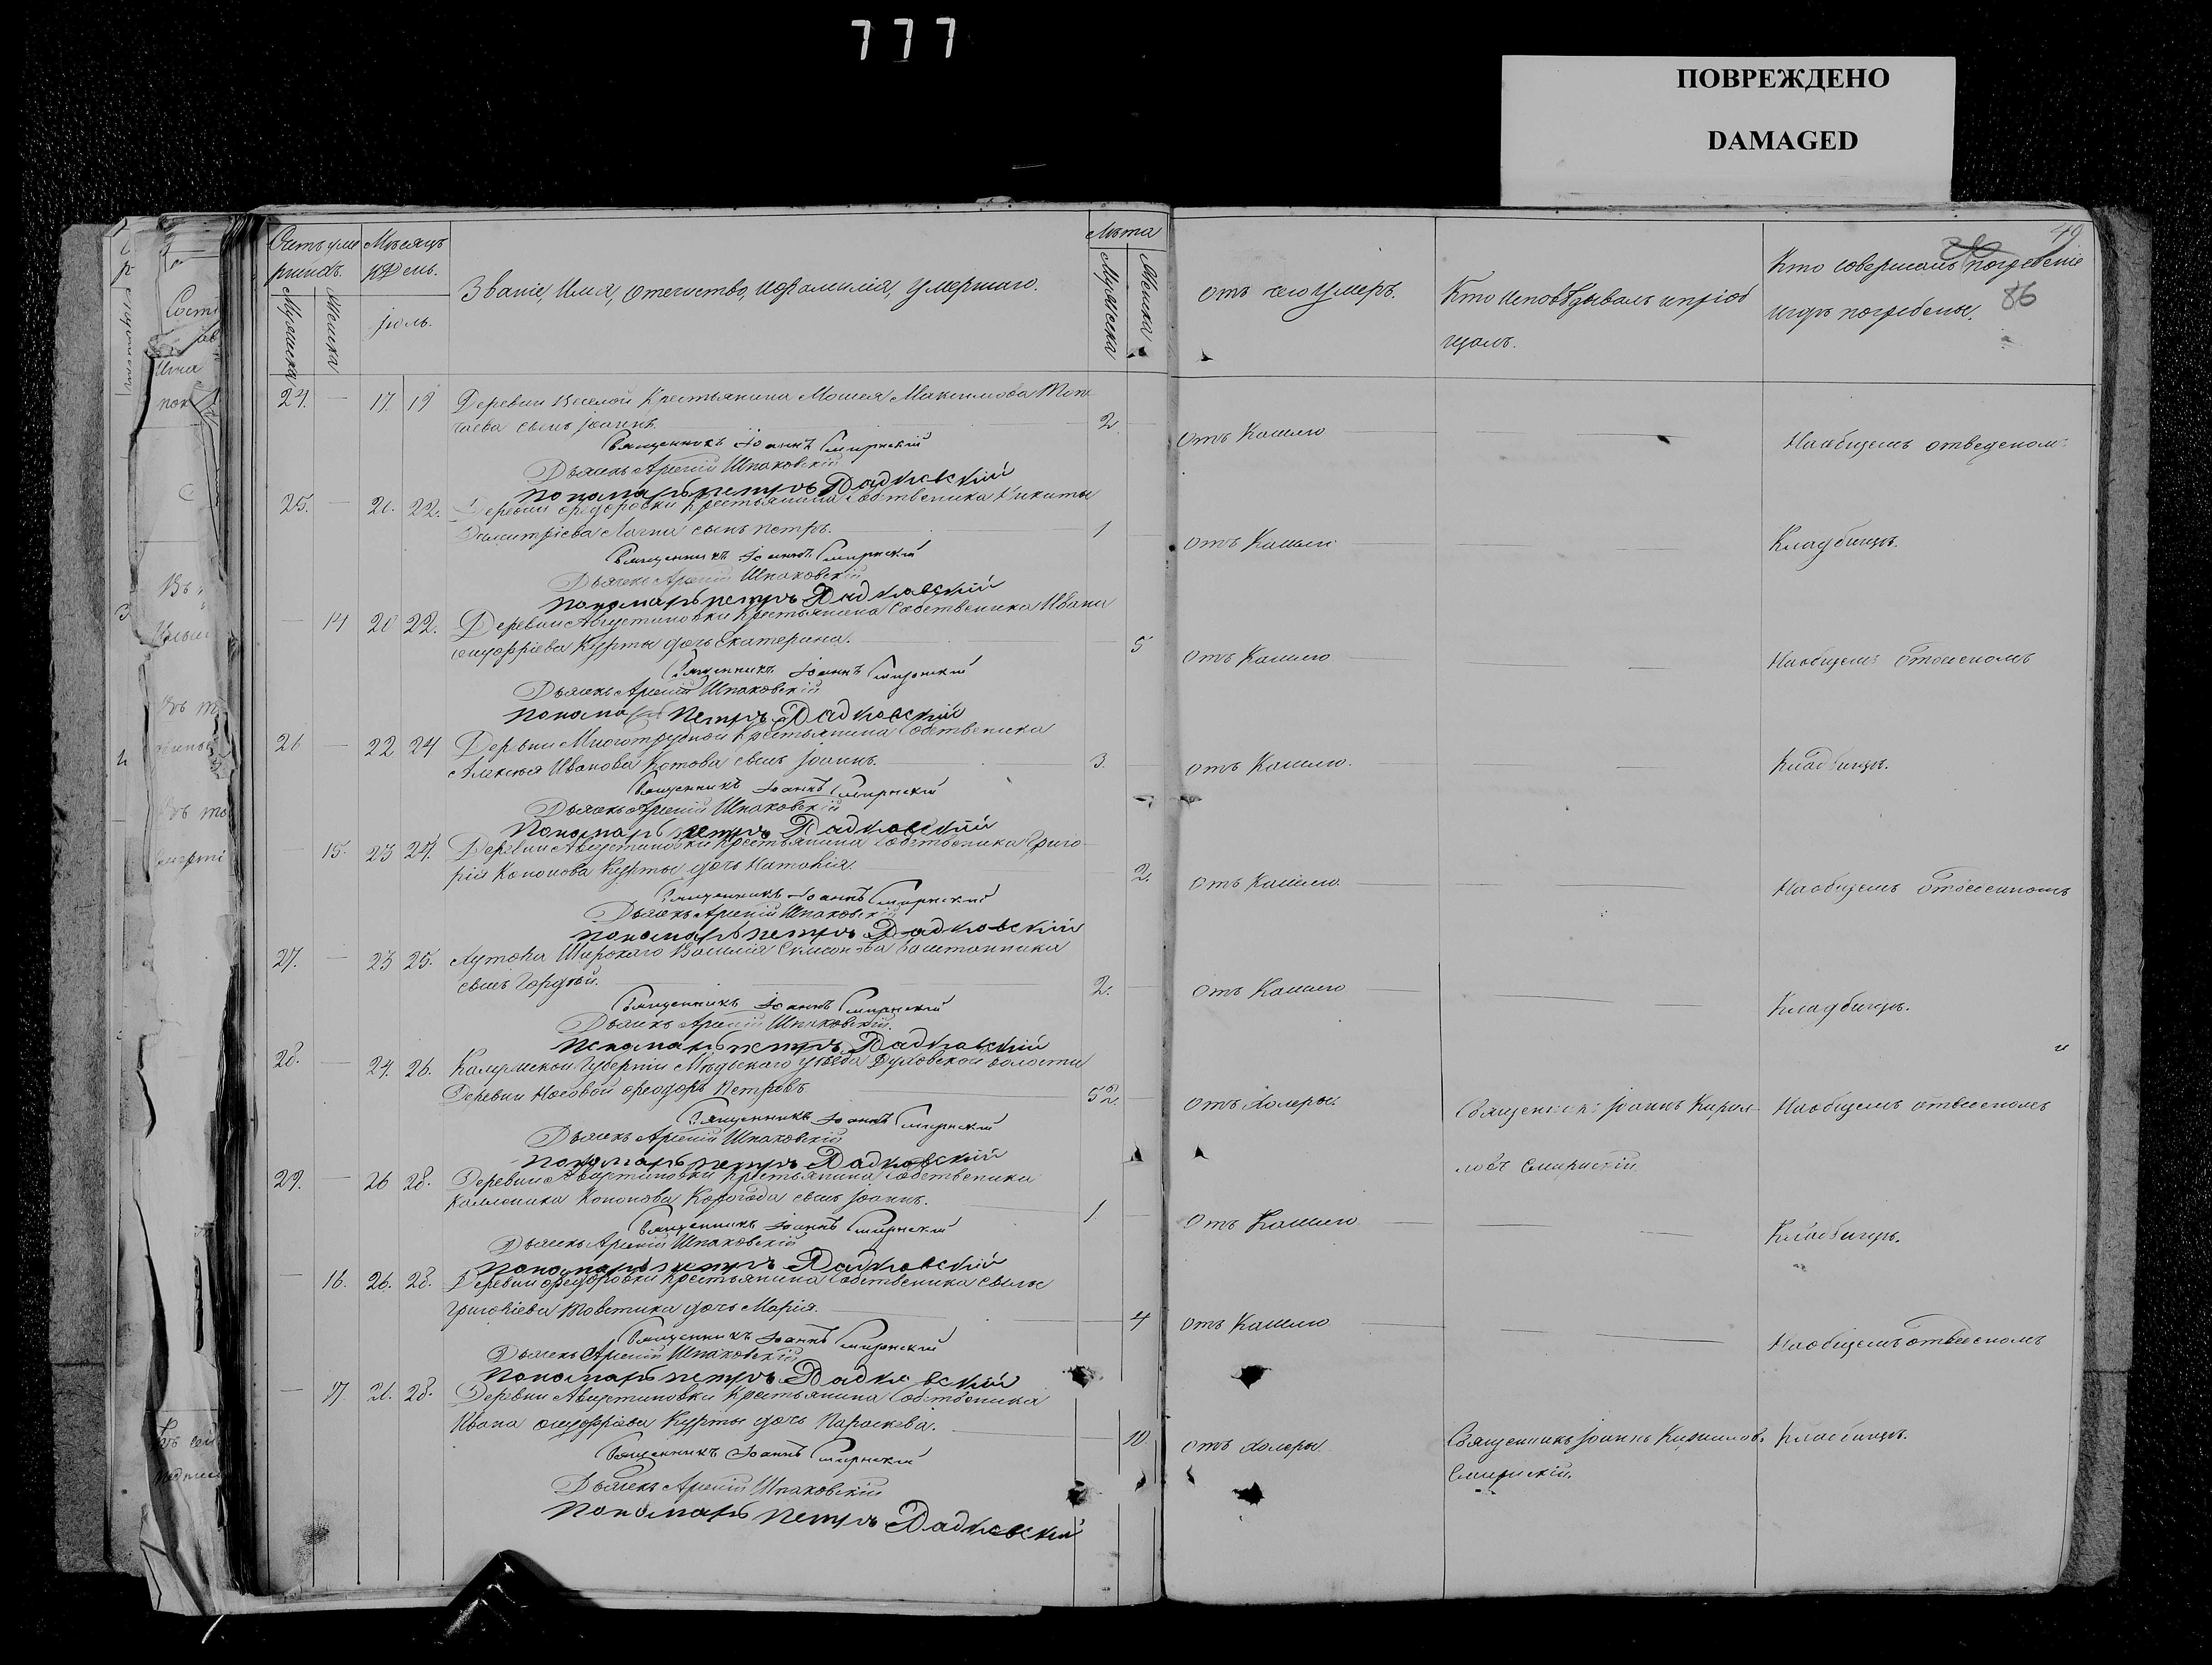 777
ПОВРЕЖДЕНО
DAMAGED
49
86
Счетъ уме
ршихъ.
Мужеска
Женска
Мѣсяцъ
и День.
Іюль.
Званіе, Имя, Отечество, и Фамилія, Умершаго.
Лѣта
Мужеска
Женска
Отъ чего Умеръ.
Кто Исповѣдывалъ и пріоб
щалъ.
Кто совершалъ погребеніе
и гдѣ погребены.
24. — 17. 19 Деревни Веселой Крестьянина Мосея Максимова
сынъ Іоаннъ. 2. Отъ Кашлю — — На общемъ отведеном
Священникъ Іоаннъ Смирнскій
Дьячекъ Арсеній Шпаковскій
Пономарь Петръ Дадковскій
25. — 20. 22. Деревни Федоровки Крестьянина Собственика Никиты
Димитріева сынъ Петръ. 1 Отъ Кашлю — — Кладбищѣ.
Священникъ Іоаннъ Смирнскій
Дьячекъ Арсеній Шпаковскій
Пономарь Петръ Дадковскій
— 14 20 22. Деревни Августиновки Крестьянина Собственика Ивана
Онуфріева Курты дочь Екатерина. 5 Отъ Кашлю — — На общемъ отведеномъ
Священникъ Іоаннъ Смирнскій
Дьячекъ Арсеній Шпаковскій
Пономарь Петръ Дадковскій
26 — 22 24 Деревни Многотрудной Крестьянина Собственика
Алексея Иванова Котова сынъ Іоаннъ. 3. Отъ Кашлю. — — Кладбищѣ.
Священникъ Іоаннъ Смирнскій
Дьячекъ Арсеній Шпаковскій
Пономарь Петръ Дадковскій
— 15. 23 24. Деревни Августиновки Крестьянина Собственика Григо
рія Кононова Курты дочь Наталія. 2. Отъ Кашлю. — — На общемъ отведенномъ
Священникъ Іоаннъ Смирнскій
Дьячекъ Арсеній Шпаковскій
Пономарь Петръ Дадковскій
27. — 23 25. Хутора Широкаго Василія Симонова Баштанника
сынъ Гордѣй. 2. Отъ Кашлю — — Кладбищѣ.
Священникъ Іоаннъ Смирнскій
Дьячекъ Арсеній Шпаковскій.
Пономарь Петръ Дадковскій
28. — 24. 26. Калужской Губерніи Уѣзда волости
Деревни Носовой Феодоръ Петровъ 52. Отъ Холеры. Священникъ Іоаннъ Кирил- На общемъ отведеномъ
ловъ Смирнскій
Священникъ Іоаннъ Смирнскій
Дьячекъ Арсеній Шпаковскій
Пономарь Петръ Дадковскій
29. — 26 28. Деревни Августиновки Крестьянина Собственика
Каллиника Кононова Корогода сынъ Іоаннъ. 1. Отъ Кашлю — — Кладбищѣ.
Священникъ Іоаннъ Смирнскій
Дьячекъ Арсеній Шпаковскій
Пономарь Петръ Дадковскій
— 16. 26. 28. Деревни Федоровки Крестьянина Собственика
Григоріева Товстика дочь Марія. 4 Отъ Кашлю — — На общемъ отведеномъ
Священникъ Іоаннъ Смирнскій
Дьячекъ Арсеній Шпаковскій
Пономарь Петръ Дадковскій
— 17. 26. 28. Деревни Августиновки Крестьянина Собственика
Ивана Онуфріева Курты дочь Параскева. 10. Отъ Холеры. Священникъ Іоаннъ Кириловъ Кладбищѣ.
Смирнскій.
Священникъ Іоаннъ Смирнскій
Дьячекъ Арсеній Шпаковскій
Пономарь Петръ Дадковскій